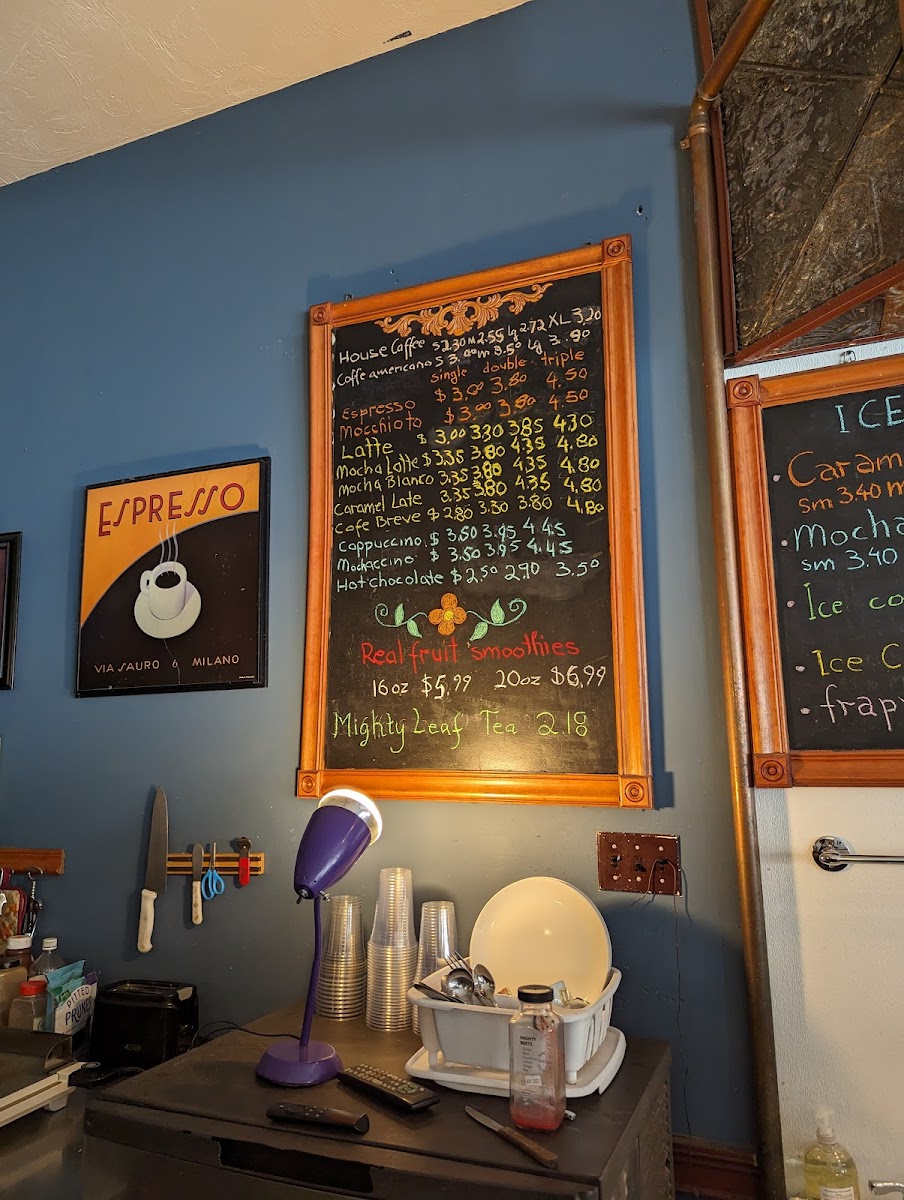 House Coffee S 2.30 M 2.55 Lg 2.72 XL 3.20
Coffe americano S 3.00 m 3.50 Lg 3.90
single double triple
Espresso $ 3.00 3.80 4.50
Mocchiato $ 3.00 3.80 4.50
Latte $ 3.00 3.30 3.85 4.30
Mocha Latte $ 3.35 3.80 4.35 4.80
Mocha Blanco 3.35 3.80 4.35 4.80
Caramel Late 3.35 3.80 4.35 4.80
Cafe Breve $ 2.80 3.30 3.80 4.80
Cappuccino $ 3.50 3.95 4.45
Mochaccino $ 3.50 3.95 4.45
Hot chocolate $ 2.50 2.90 3.50
Real fruit smoothies
16oz $5.99 20oz $6.99
Mighty Leaf Tea 2.18
ESPRESSO
VIA SAURO 6 MILANO
ICE
Caram
sm 3.40 m
Mocha
sm 3.40
Ice co
Ice C
frap
PITTED
PRUNES
MIGHTY
BEETS